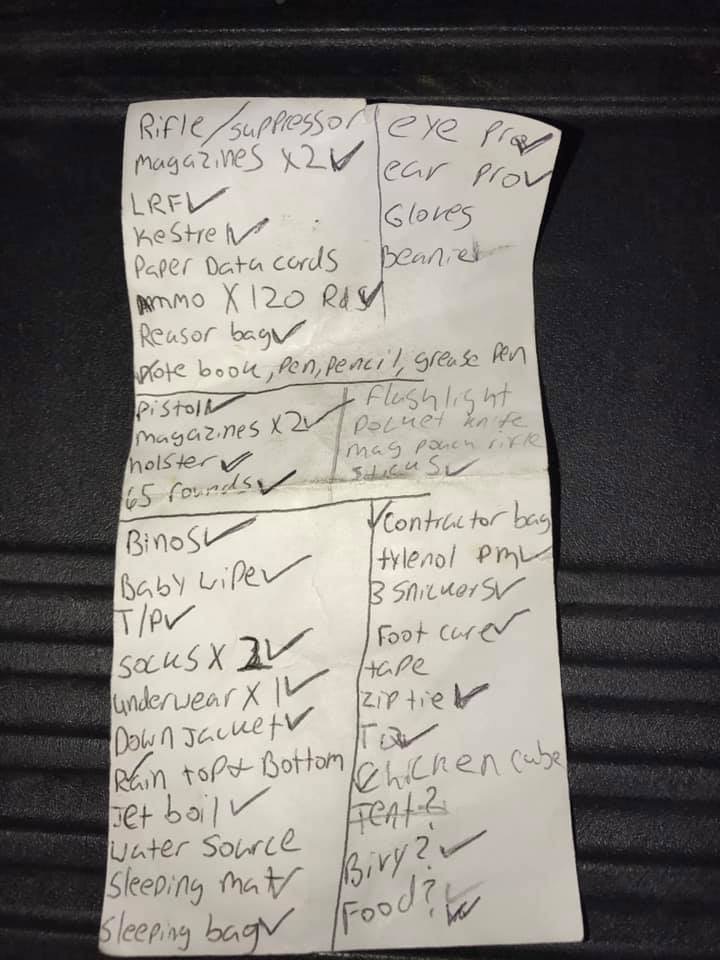 Rifle/suppressor
magazines x2✓
LRF✓
Kestrel✓
Paper Data cards
Ammo X 120 Rds✓
Reasor bag✓
Note book, pen, pencil, grease pen
eye pro✓
ear pro✓
Gloves
Beanie✓
Pistol✓
magazines x2✓
holster✓
65 rounds✓
flashlight
pocket knife
mag pouch rifle
sticks✓
Binos✓
Baby wipe✓
T/P✓
socks X 2✓
underwear X 1✓
Down Jacket✓
Rain top & Bottom
Jet boil✓
water source
Sleeping mat✓
Sleeping bag✓
✓contractor bag
tylenol pm✓
3 snickers✓
Foot care✓
tape
ziptie✓
Chicken cube
Tent?
Bivy?✓
Food?✓